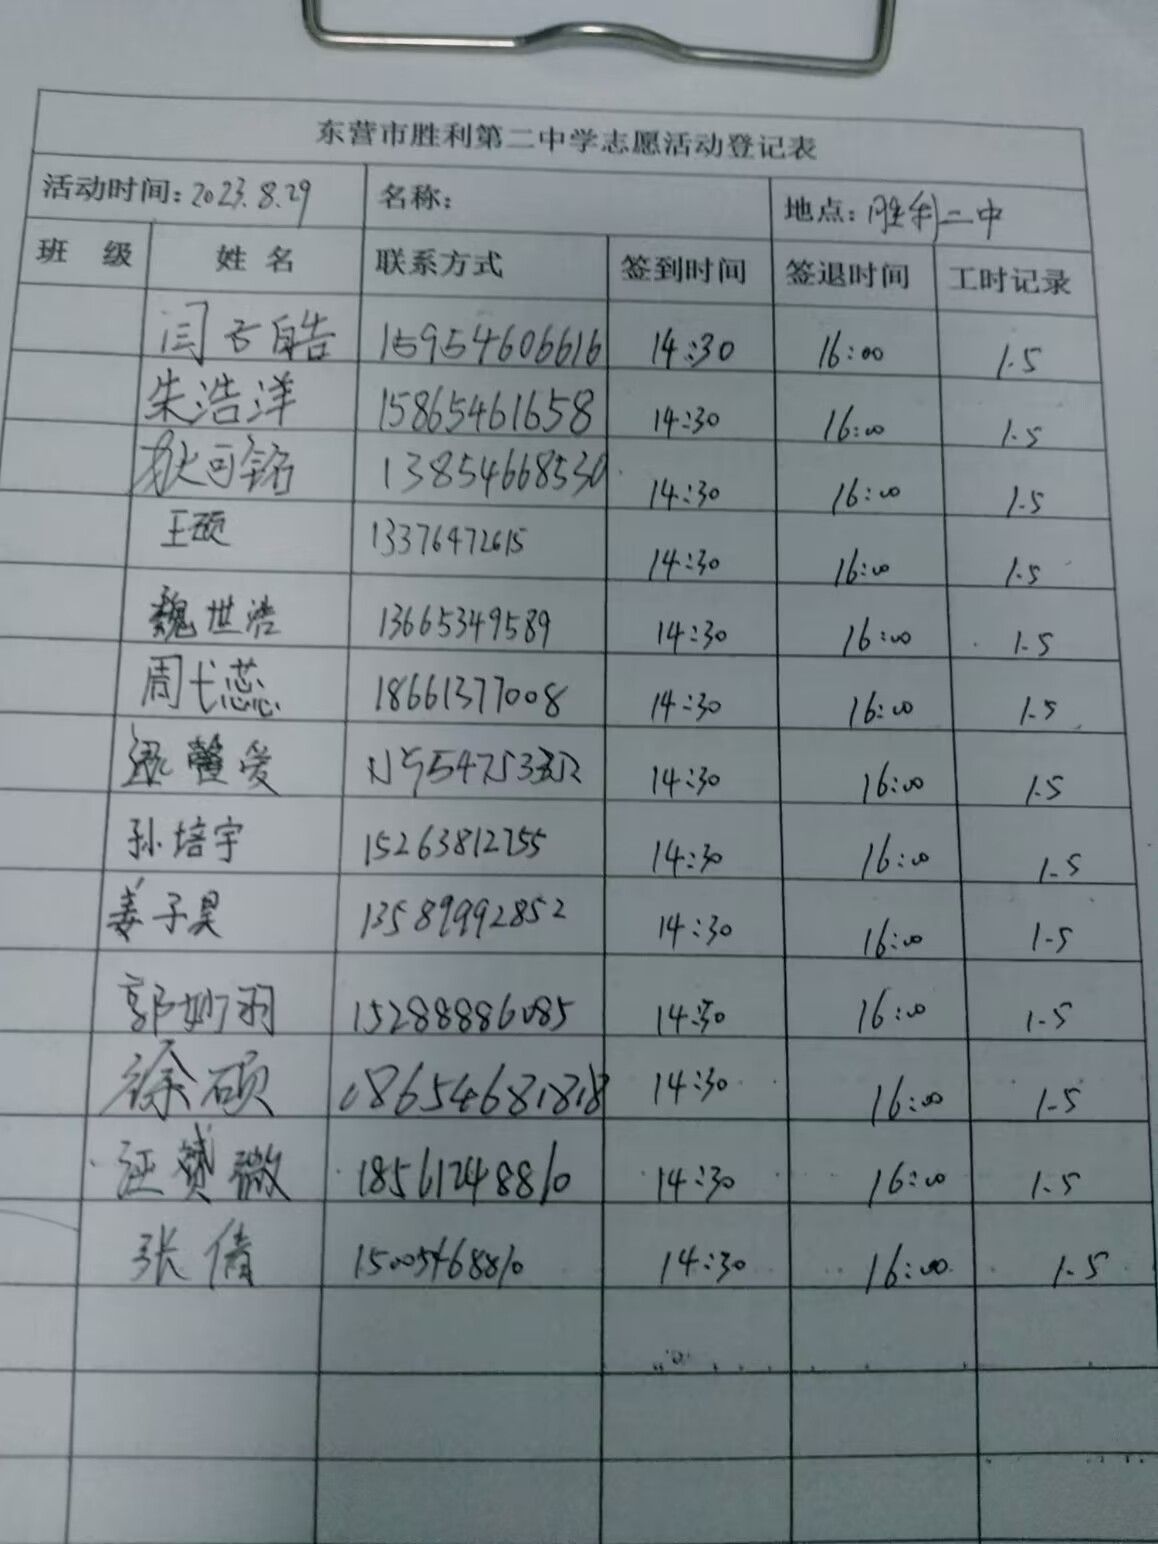 东营市胜利第二中学志愿活动登记表
活动时间:2023.8.29 名称: 地点:胜利二中
班 级 姓 名 联系方式 签到时间 签退时间 工时记录
闫子皓 15954606616 14:30 16:00 1.5
朱浩洋 15865461658 14:30 16:00 1.5
狄可铭 13854668530 14:30 16:00 1.5
王硕 13376472615 14:30 16:00 1.5
魏世浩 13665349589 14:30 16:00 1.5
周弋蕊 18661377008 14:30 16:00 1.5
馨爱 14:30 16:00 1.5
孙培宇 15263812755 14:30 16:00 1.5
姜子昊 13589992852 14:30 16:00 1.5
郭妙羽 15288886085 14:30 16:00 1.5
徐硕 18654681818 14:30 16:00 1.5
汪赟微 18561248810 14:30 16:00 1.5
张倩 15005468810 14:30 16:00 1.5